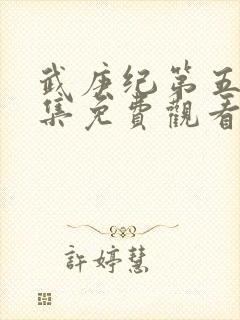 武庚纪第五
集免費觀看
許婷慧